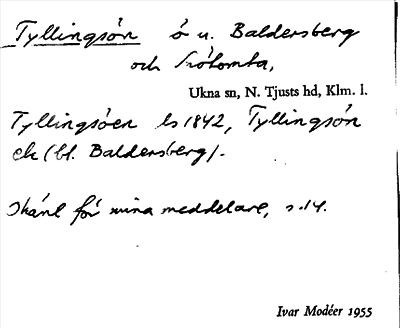 Tyllingsön ö u. Baldersberg
och Sjötomta,
Ukna sn, N. Tjusts hd, Klm. l.
Tyllingsöen ls 1842, Tyllingsön
ek (bl. Baldersberg).
för mina meddelare, s. 14.
Ivar Modéer 1955